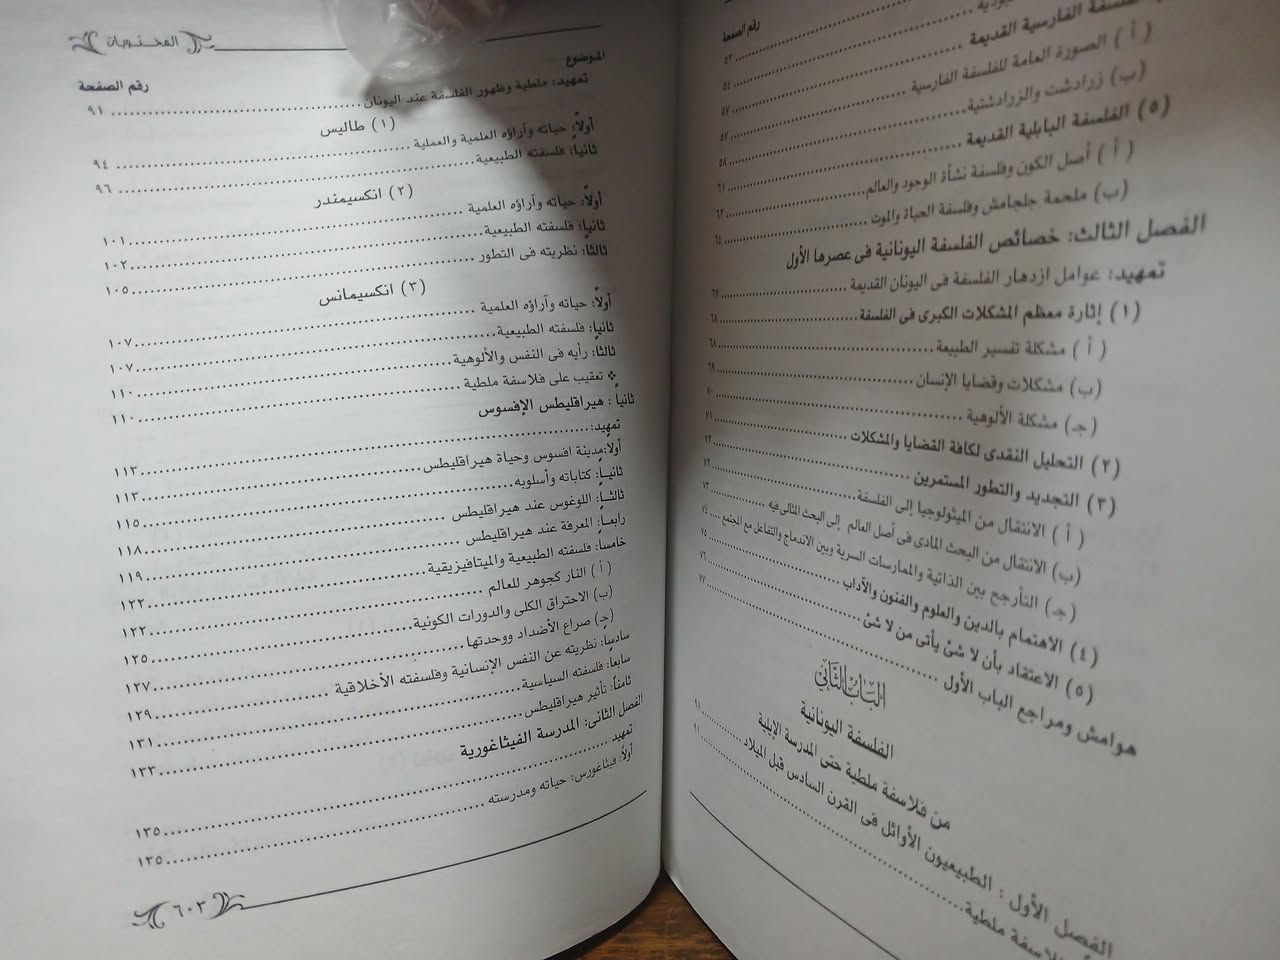 رقم الصفحة
الفلسفة الفارسية القديمة ٥٣
( أ ) الصورة العامة للفلسفة الفارسية ٥٤
(ب) زرادشت والزرادشتية ٥٧
(٥) الفلسفة البابلية القديمة ٥٧
٥٨
( أ ) أصل الكون وفلسفة نشأة الوجود والعالم ٦١
(ب) ملحمة جلجامش وفلسفة الحياة والموت ٦٢
٦٤
الفصل الثالث: خصائص الفلسفة اليونانية فى عصرها الأول
تمهيد: عوامل ازدهار الفلسفة فى اليونان القديمة ٦٧
(١) إثارة معظم المشكلات الكبرى فى الفلسفة ٦٨
( أ ) مشكلة تفسير الطبيعة ٦٨
(ب) مشكلات وقضايا الإنسان ٦٩
(جـ) مشكلة الألوهية ٧٠
(٢) التحليل النقدى لكافة القضايا والمشكلات ٧١
(٣) التجديد والتطور المستمرين ٧٢
( أ ) الانتقال من الميثولوجيا إلى الفلسفة ٧٢
(ب) الانتقال من البحث المادى فى أصل العالم إلى البحث المثالى فيه ٧٣
(جـ) التأرجح بين الذاتية والممارسات السرية وبين الاندماج والتفاعل مع المجتمع ٧٤
(٤) الاهتمام بالدين والعلوم والفنون والآداب ٧٥
(٥) الاعتقاد بأن لا شئ يأتى من لا شئ ٧٦
هوامش ومراجع الباب الأول ٧٧
الباب الثانى
الفلسفة اليونانية
من فلاسفة ملطية حتى المدرسة الإيلية
الفصل الأول : الطبيعيون الأوائل فى القرن السادس قبل الميلاد ٩١
فلاسفة ملطية ٩١
المحتويات
الموضوع رقم الصفحة
تمهيد: ملطية وظهور الفلسفة عند اليونان ٩١
(١) طاليس
أولاً: حياته وآراؤه العلمية والعملية ٩٤
ثانياً: فلسفته الطبيعية ٩٦
(٢) انكسيمندر
أولاً: حياته وآراؤه العلمية ١٠١
ثانياً: فلسفته الطبيعية ١٠٢
ثالثاً: نظريته فى التطور ١٠٥
(٣) انكسيمانس
أولاً: حياته وآراؤه العلمية ١٠٧
ثانياً: فلسفته الطبيعية ١٠٧
ثالثاً: رأيه فى النفس والألوهية ١١٠
تعقيب على فلاسفة ملطية ١١٠
ثانياً : هيراقليطس الإفسوس
تمهيد: ١١٣
أولاً: مدينة افسوس وحياة هيراقليطس ١١٣
ثانياً: كتاباته وأسلوبه ١١٥
ثالثاً: اللوغوس عند هيراقليطس ١١٨
رابعاً: المعرفة عند هيراقليطس ١١٩
خامساً: فلسفته الطبيعية والميتافيزيقية ١٢٢
( أ ) النار كجوهر للعالم ١٢٢
(ب) الاحتراق الكلى والدورات الكونية ١٢٥
(جـ) صراع الأضداد ووحدتها ١٢٧
سادساً: نظريته عن النفس الإنسانية وفلسفته الأخلاقية ١٢٩
سابعاً: فلسفته السياسية ١٣١
ثامناً: تأثير هيراقليطس ١٣٣
الفصل الثانى: المدرسة الفيثاغورية
تمهيد ١٣٥
أولاً: فيثاغورس: حياته ومدرسته ١٣٥
٦٠٣